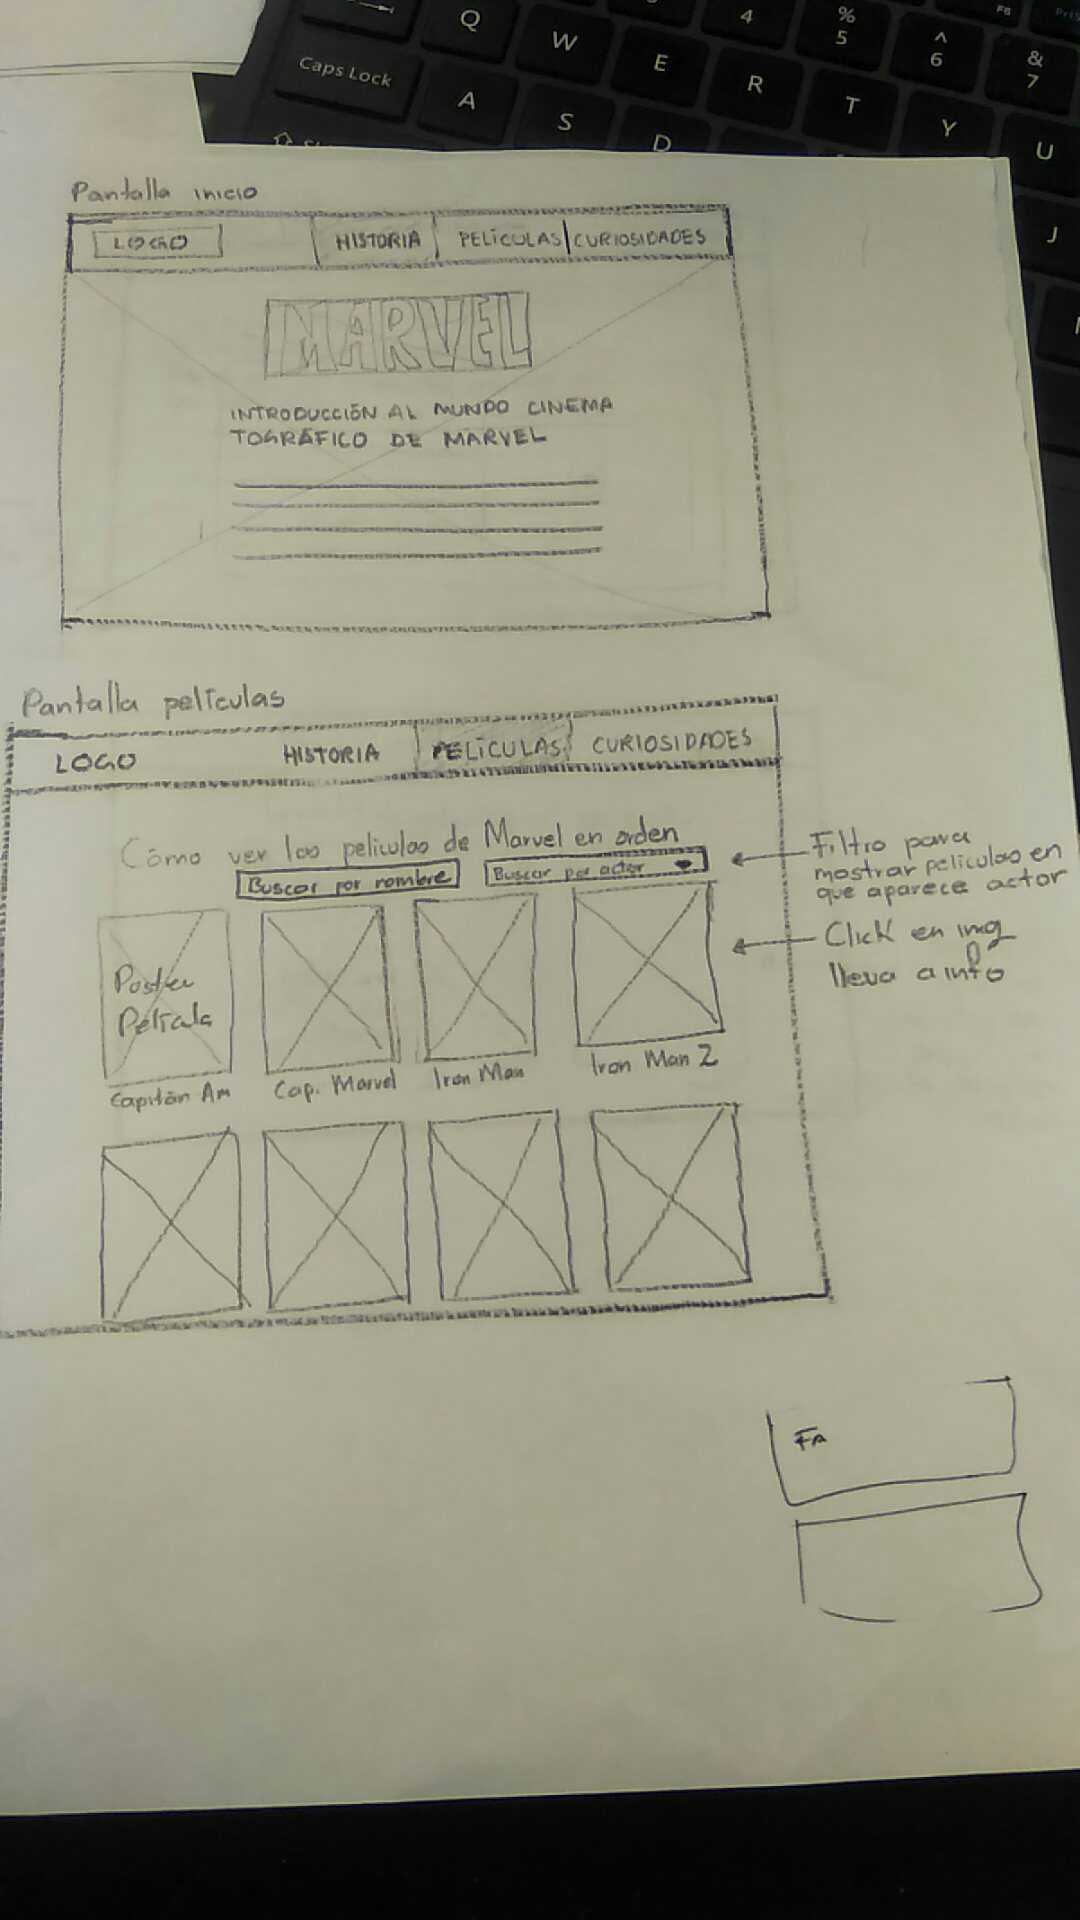 Q
4
%
5
^
6
F6
&
7
Caps Lock
W
E
R
T
Y
U
A
S
D
J
Pantalla inicio
LOGO
HISTORIA
PELÍCULAS
CURIOSIDADES
MARVEL
INTRODUCCIÓN AL MUNDO CINEMA
TOGRÁFICO DE MARVEL
Pantalla películas
LOGO
HISTORIA
PELÍCULAS
CURIOSIDADES
Cómo ver las películas de Marvel en orden
Buscar por nombre
Buscar por actor
Filtro para
mostrar películas en
que aparece actor
Click en img
lleva a info
Poster
Película
Capitán Am
Cap. Marvel
Iron Man
Iron Man 2